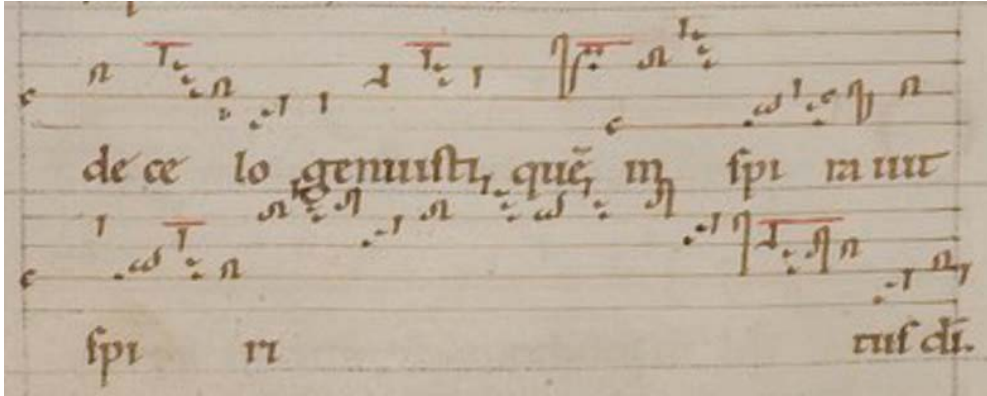 de ce lo genuisti, quē, in spi ra uit
spi ri tus dī.